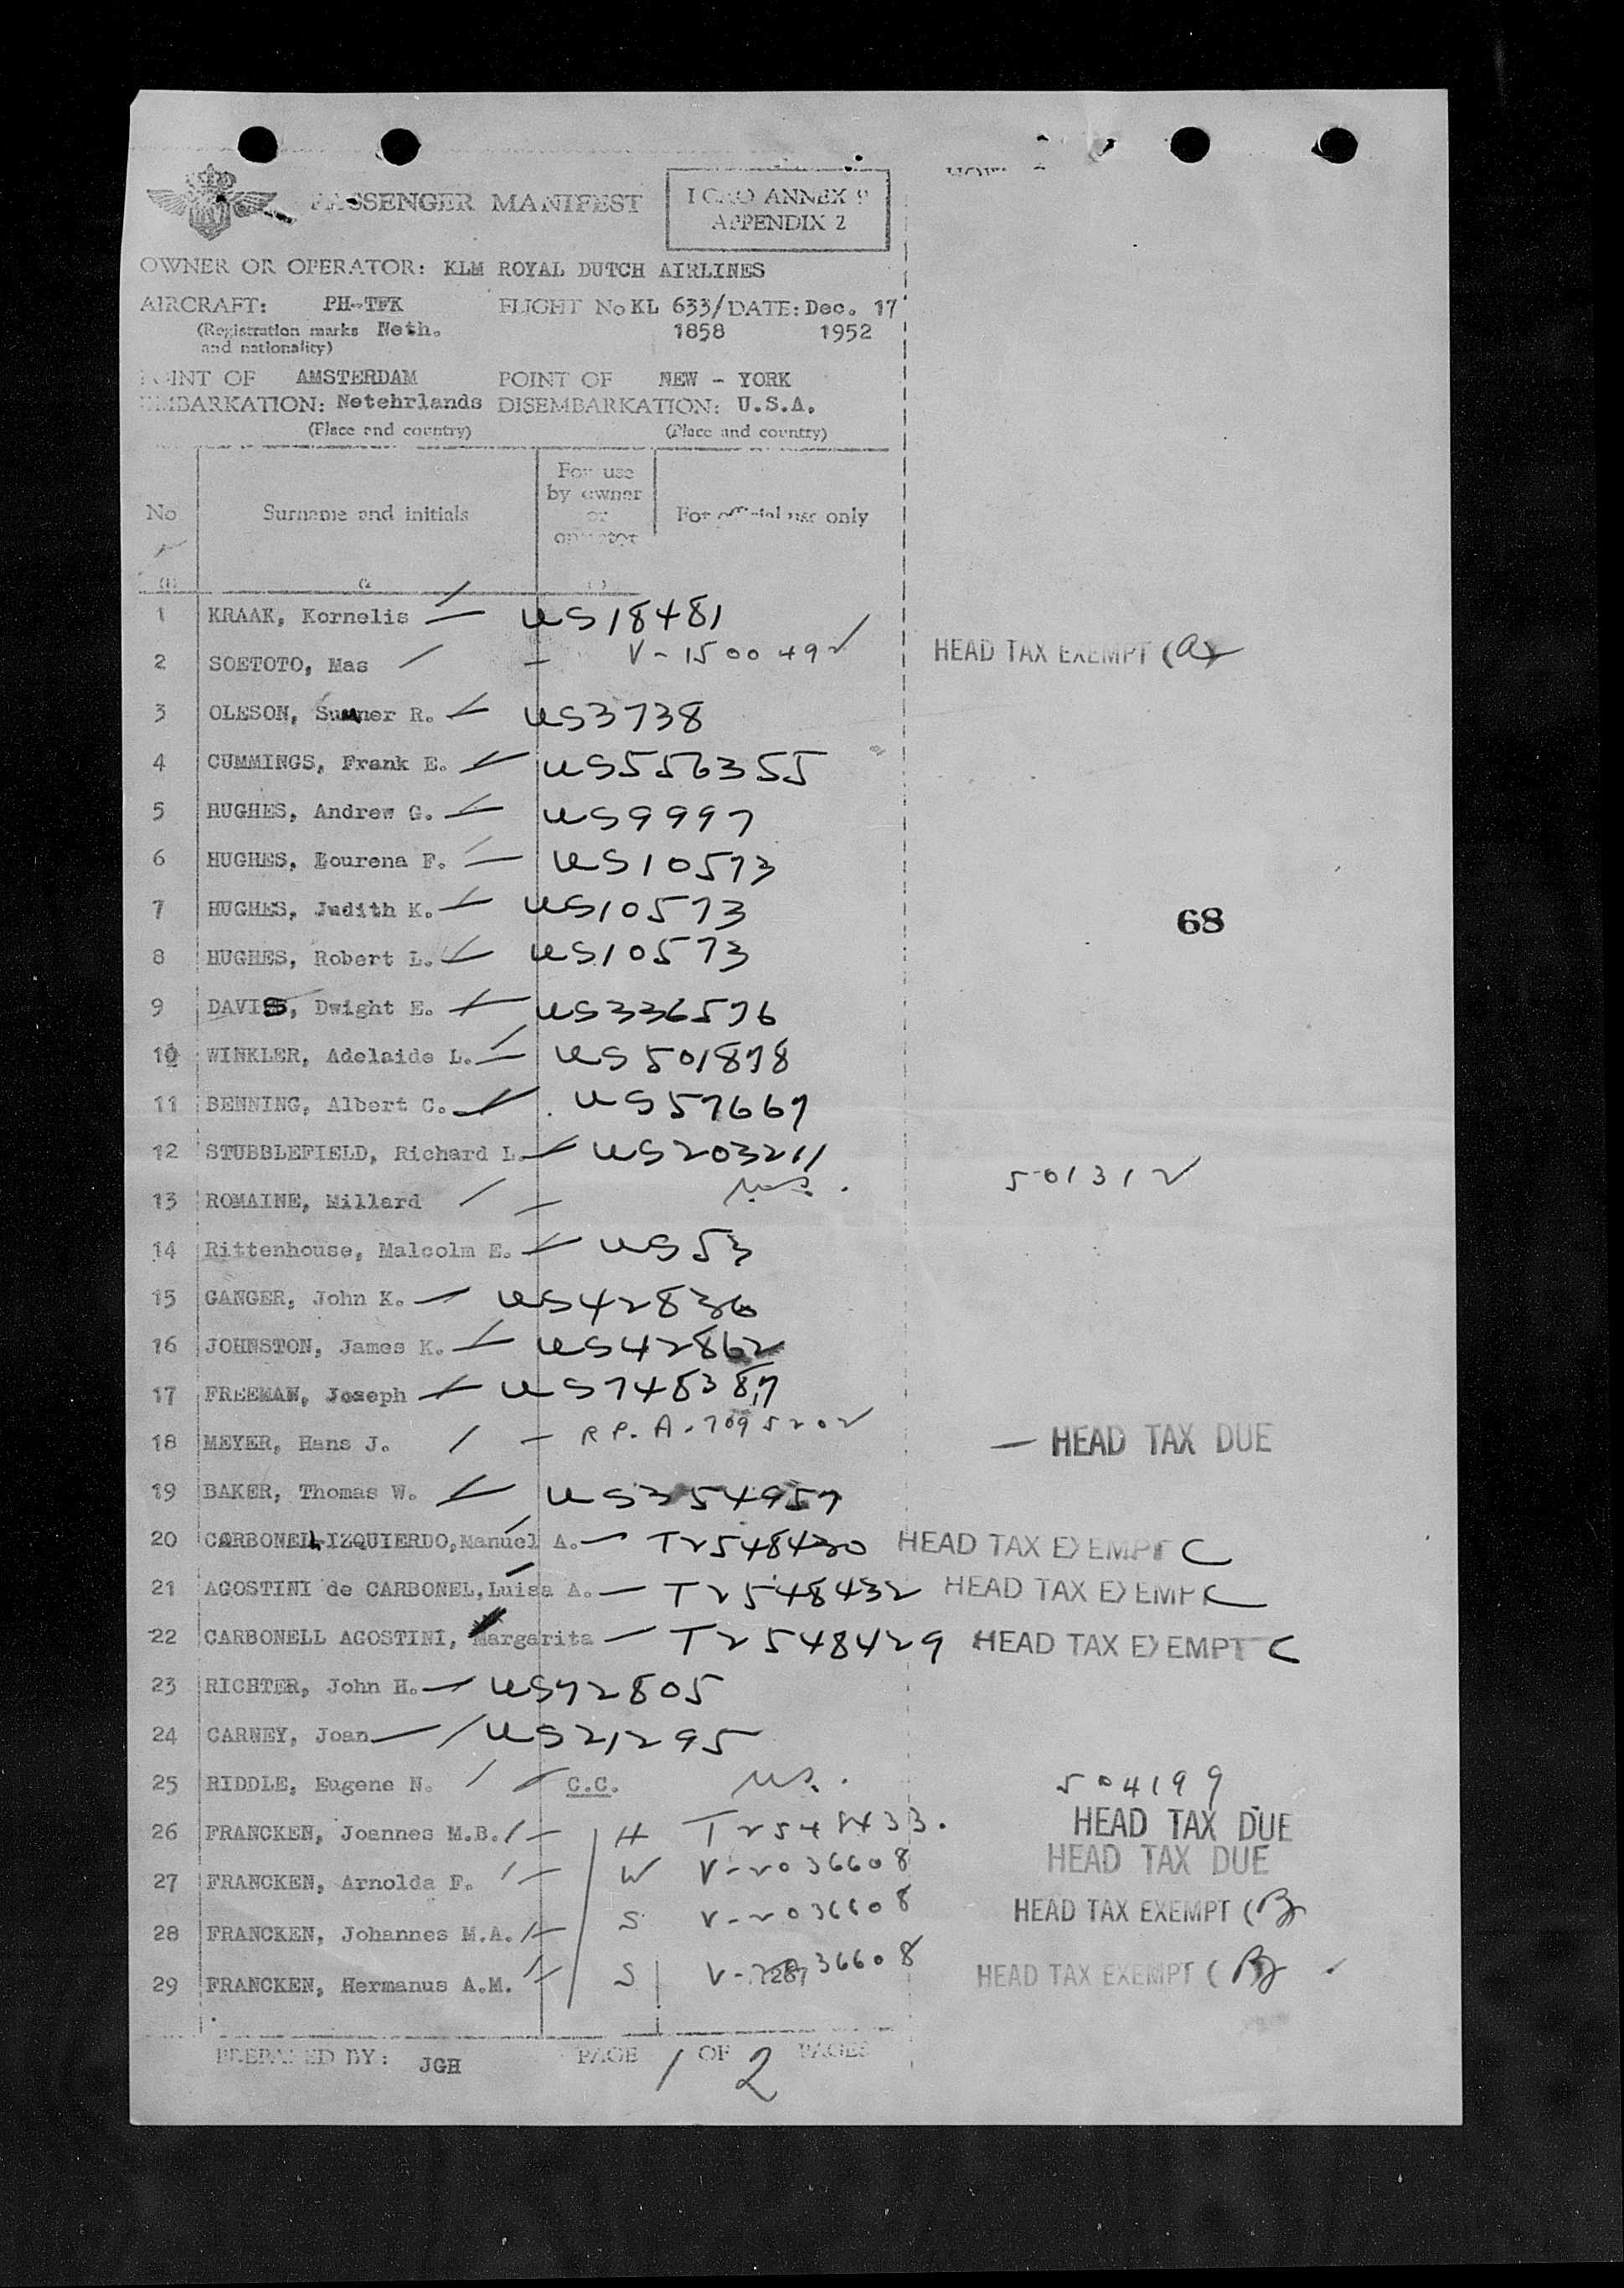 PASSENGER MANIFEST
ICAO ANNEX 9
APPENDIX 2
OWNER OR OPERATOR: KLM ROYAL DUTCH AIRLINES
AIRCRAFT: PH-TFK FLIGHT No KL 633/ DATE: Dec. 17
(Registration marks Neth. 1858 1952
and nationality)
POINT OF AMSTERDAM POINT OF NEW - YORK
EMBARKATION: Netehrlands DISEMBARKATION: U.S.A.
(Place and country) (Place and country)
No Surname and initials For use by owner or operator For official use only
1 KRAAK, Kornelis US18481
2 SOETOTO, Mas V-1500492 HEAD TAX EXEMPT (a)
3 OLESON, Sumner R. US3738
4 CUMMINGS, Frank E. US556355
5 HUGHES, Andrew G. US9997
6 HUGHES, Lourena F. US10573
7 HUGHES, Judith K. US10573
68
8 HUGHES, Robert L. US10573
9 DAVIS, Dwight E. US336576
10 WINKLER, Adelaide L. US501878
11 BENNING, Albert C. US57667
12 STUBBLEFIELD, Richard L. US203211
13 ROMAINE, Millard U.S. 501312
14 Rittenhouse, Malcolm E. US53
15 GANGER, John K. US42836
16 JOHNSTON, James K. US42862
17 FREEMAN, Joseph US748387
18 MEYER, Hans J. R.P. A-7095202 — HEAD TAX DUE
19 BAKER, Thomas W. US354957
20 CARBONELL-IZQUIERDO, Manuel A. T2548430 HEAD TAX EXEMPT C
21 AGOSTINI de CARBONEL, Luisa A. T2548432 HEAD TAX EXEMPT C
22 CARBONELL AGOSTINI, Margarita T2548429 HEAD TAX EXEMPT C
23 RICHTER, John H. US72805
24 CARNEY, Joan US21295
25 RIDDLE, Eugene N. C.C. U.S. 504199
26 FRANCKEN, Joannes M.B. H T2548433. HEAD TAX DUE
27 FRANCKEN, Arnolda F. W V-2036608 HEAD TAX DUE
28 FRANCKEN, Johannes M.A. S V-2036608 HEAD TAX EXEMPT (B)
29 FRANCKEN, Hermanus A.M. S V-2036608 HEAD TAX EXEMPT (B)
PREPARED BY: JGH PAGE 1 OF 2 PAGES